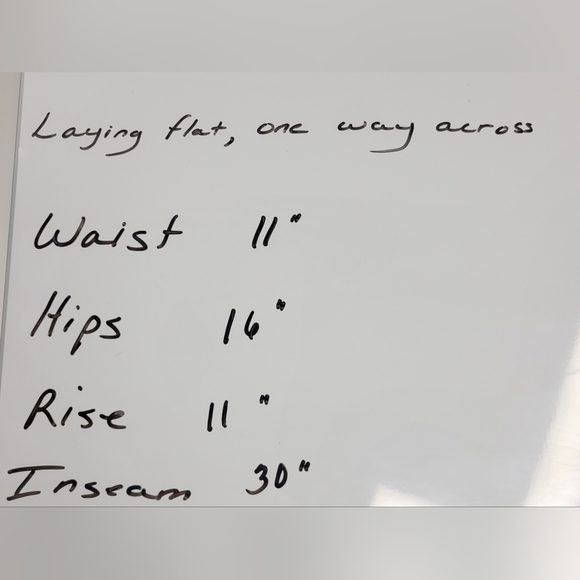 Laying flat, one way across
Waist 11"
Hips 16"
Rise 11"
Inseam 30"